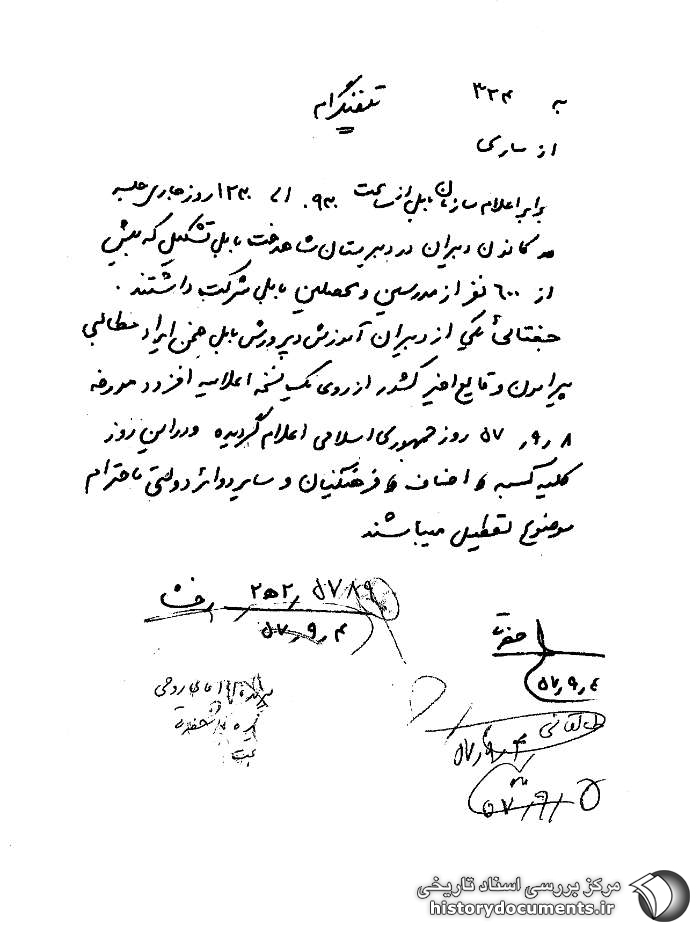 به ۳۲۴ تلفنگرام
از ساری
برابر اعلام سازمان بابل از ساعت ۰۹۳۰ الی ۱۲۳۰ روز جاری جلسه
در کانون دبیران در دبیرستان شاهدخت بابل تشکیل که بیش
از ۶۰۰ نفر از مدرسین و محصلین بابل شرکت داشتند.
یکی از دبیران آموزش و پرورش بابل ضمن ایراد مطالبی
پیرامون وقایع اخیر کشور از روی یک نسخه اعلامیه افزود مورخه
۵۷٫۹٫۸ روز جمهوری اسلامی اعلام گردیده و در این روز
کلیه کسبه و اصناف و فرهنگیان و سایر دوائر دولتی باحترام
موضوع تعطیل میباشند
۵۷٫۹٫۴
۵۷٫۹٫۴
طالقانی
۵۷٫۹٫۴
۵۷٫۹٫۵
مرکز بررسی اسناد تاریخی
historydocuments.ir